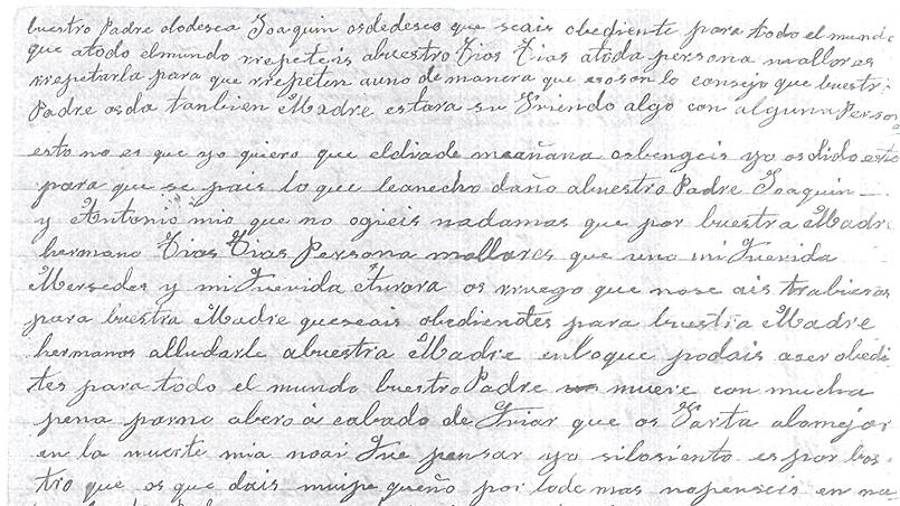 buestro Padre olodesea Joaquin osdedeseo que seais obediente para todo el mundo
que atodo elmundo rrepeteis abuestro Tios Tias atoda persona mallores
rrepetarla para que rrepeten auno de manera que esoson lo consejo que buestr
Padre osda tanbien Madre estara su friendo algo con alguna Person
esto no es que yo quiero que eldiade meañana osbengeis yo osdido esto
para que se pais lo que leanecho daño abuestro Padre Joaquin
y Antonio mio que no ogieis nadamas que por buestra Madre
hermano Tios Tias Persona mallores que uno mi Querida
Mersedes y mi Querida Aurora os rruego que nose ais trabiesas
para buestra Madre queseais obedientes para buestra Madre
hermanos alludarle abuestra Madre enloque podais aser obedi
tes para todo el mundo buestro Padre muere con mucha
pena porno abero a cabado de Criar que os Farta alomejor
en la muerte mia noai Que pensar yo silosiento es por bos
tro que os que dais muipe queño por lode mas nopenseis en na